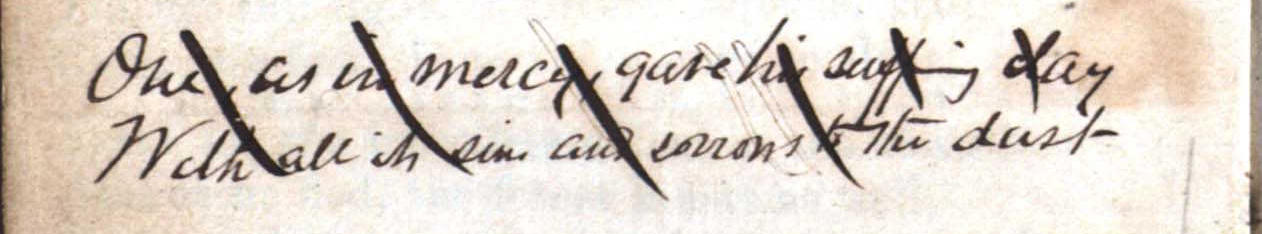 One, as in mercy, gave his suffering day
With all its sins and sorrows to the dust